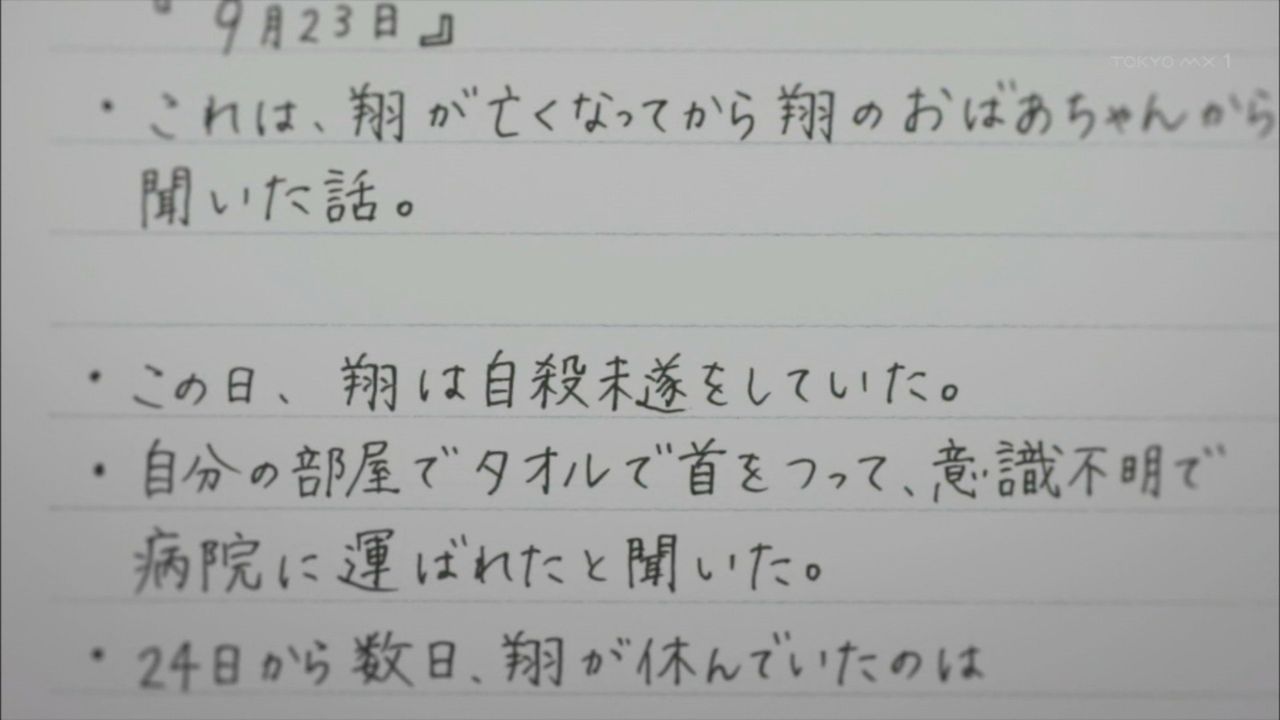 『9月23日』
TOKYO MX 1
・これは、翔が亡くなってから翔のおばあちゃんから
聞いた話。
・この日、翔は自殺未遂をしていた。
・自分の部屋でタオルで首をつって、意識不明で
病院に運ばれたと聞いた。
・24日から数日、翔が休んでいたのは